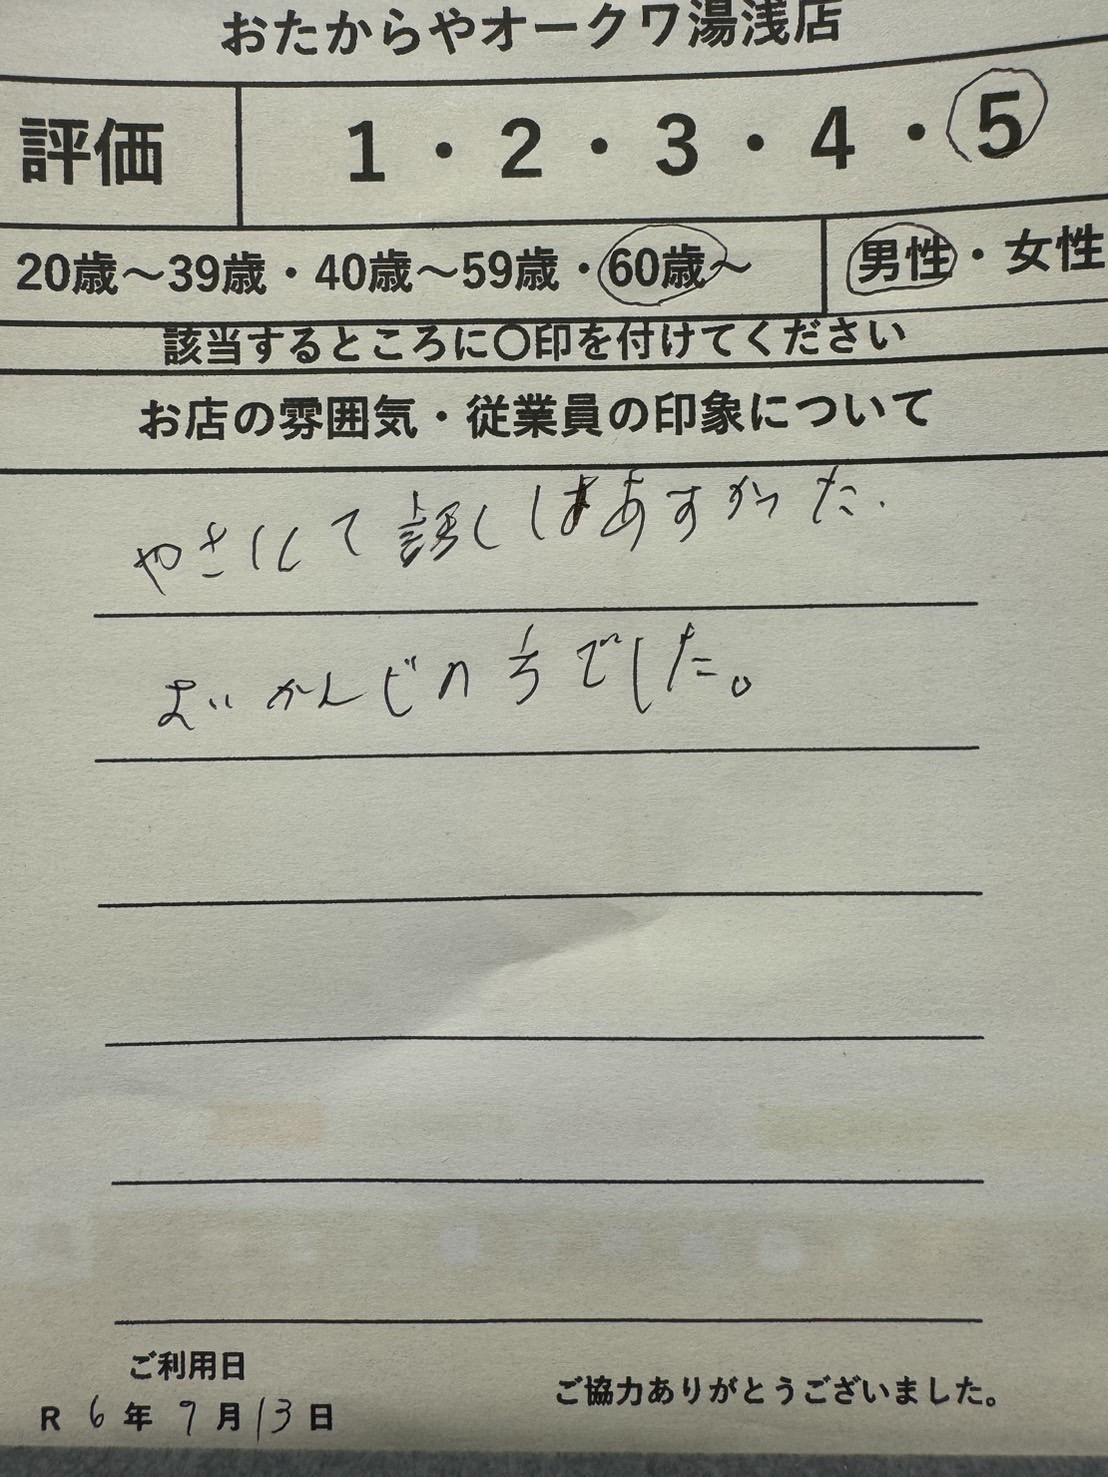 おたからやオークワ湯浅店
評価 1・2・3・4・5
20歳～39歳・40歳～59歳・60歳～ 男性・女性
該当するところに〇印を付けてください
お店の雰囲気・従業員の印象について
やさしくて話しはあすかった.
よいかんじの方でした。
ご利用日
ご協力ありがとうございました。
R 6年 9月13日